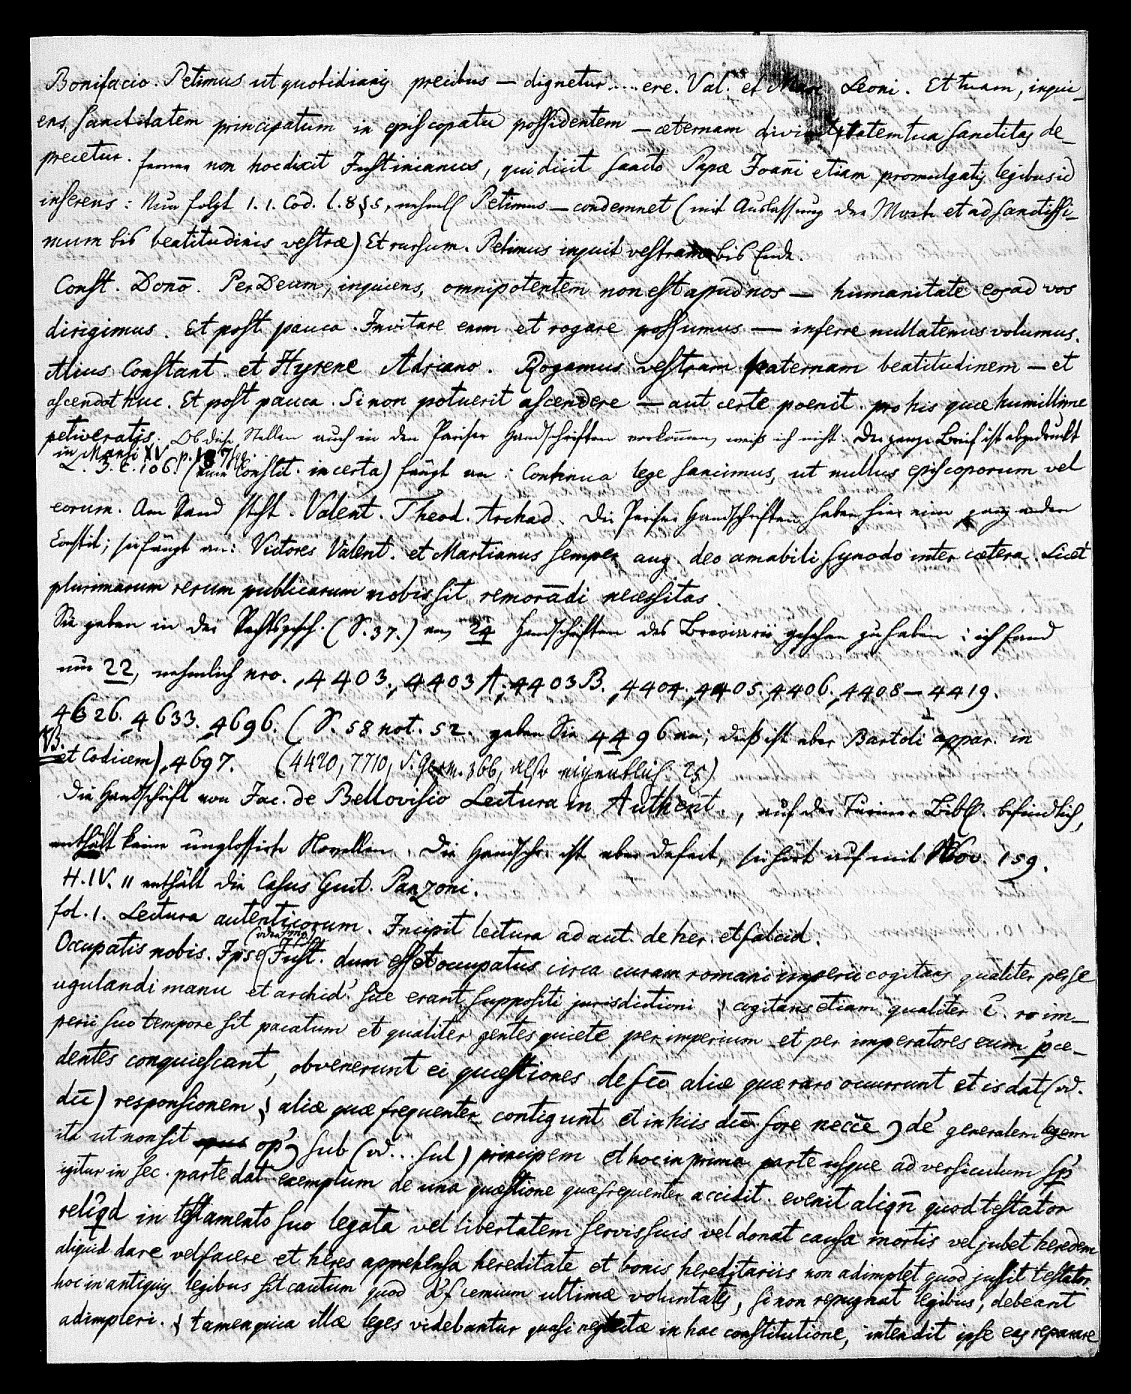 Bonifacio. Petimus ut quotidianis precibus — dignetur .... ere. Val. et Marc. Leoni. Et tuam, inqui-
ens, sanctitatem principatum in episcopatu possidentem — æternam divinitatem tua sanctitas de-
precetur. non hoc dixit Justinianus, qui dicit sancto Papæ Joani etiam promulgatis legibus id
inserens: Nun folgt l. 1. Cod. l. 8 § 5, nehml. Petimus — condemnet (mit Auslassung der Worte et ad sanctissi-
mum bis beatitudinis vestræ) Et rursum. Petimus inquit vestram bis Ende.
Const. Dono. Per Deum, inquiens, omnipotentem non est apud nos — humanitate ea ad vos
dirigimus. Et post pauca. Invitare eum et rogare possumus — inferre nullatenus volumus.
Alius Constant. et Hyrene Adriano. Rogamus vestram paternam beatitudinem — et
ascendat huc. Et post pauca. Si non potuerit ascendere — aut certe poenit. pro his quæ humillime
petiveratis. Ob diese Stellen auch in den Pariser Handschriften vorkommen, weiß ich nicht. Der ganze Brief ist abgedruckt
in Mansi XV p.
L. 3. c. 106. (eine Constit. incerta) fängt an: Continua lege sancimus, ut nullus episcoporum vel
eorum. Am Rand steht. Valent. Theod. Archad. Die Pariser Handschriften haben hier eine ganz andere
Constit; sie fängt an: Victores Valent. et Martianus semper aug. deo amabili synodo inter cætera. Licet
plurimarum rerum publicarum nobis sit remorādi necessitas.
Sie geben in der Rechtsgesch. (S. 37.) an, 24 Handschriften des Breviarii gesehen zu haben: ich fand
nur 22, nehmlich nro. 4403. 4403 A, 4403 B. 4404. 4405. 4406. 4408 — 4419.
4626. 4633. 4696. (S. 58 not. 52. geben Sie 4496 an; dieß ist aber Bartoli appar. in
VB.
et Codicem), 4697. (4420, 7710, S. Germ. 366, also eigentlich: 25)
Die Handschrift von Jac. de Bellovisio Lectura in Authent., auf der Turiner Bibl. befindlich,
enthält keine unglossirte Novellen. Die Handschr. ist aber defect, sie hört auf mit Nov. 159.
H. IV. 11 enthält die Casus Guit. Panzoni.
fol. 1. Lectura autenticorum. Incipit lectura ad aut. de her. et falcid.
Occupatis nobis. Ipse Just. dum esset occupatus circa curam romani imperii cogitans qualiter perse
ugulandi manu et archid' sue erant suppositi jurisdictioni § cogitans etiam qualiter E. ro im-
perii suo tempore sit pacatum et qualiter gentes quiete per imperium et per imperatores eum p'ce-
dentes conquiescant, obvenerunt ei quæstiones de scō aliæ quæ raro occurrunt et is dat (vd.
dic̄) responsionem § aliæ quæ frequenter contigunt et in hiis dic̄ fore necc̄e de' generalem legem
ita ut non sit op' sub (vd... sul) principem et hoc in prima parte usque ad versiculum sp'
igitur in sec. parte dat exemplum de una quæstione quæ frequenter accidit. evenit aliqn̄ quod testator
reliq̄d in testamento suo legata vel libertatem servis suis vel donat causa mortis vel jubet heredem
aliquid dare vel facere et heres apprehensa hereditate et bonis hereditariis non adimplet quod jussit testator
hoc in antiquis legibus sit cautum quod ultimæ voluntates, si non repugnat legibus, debeant
adimpleri. § tamen quia illæ leges videbantur quasi neglectæ in hac constitutione, intendit ipse eas reparare